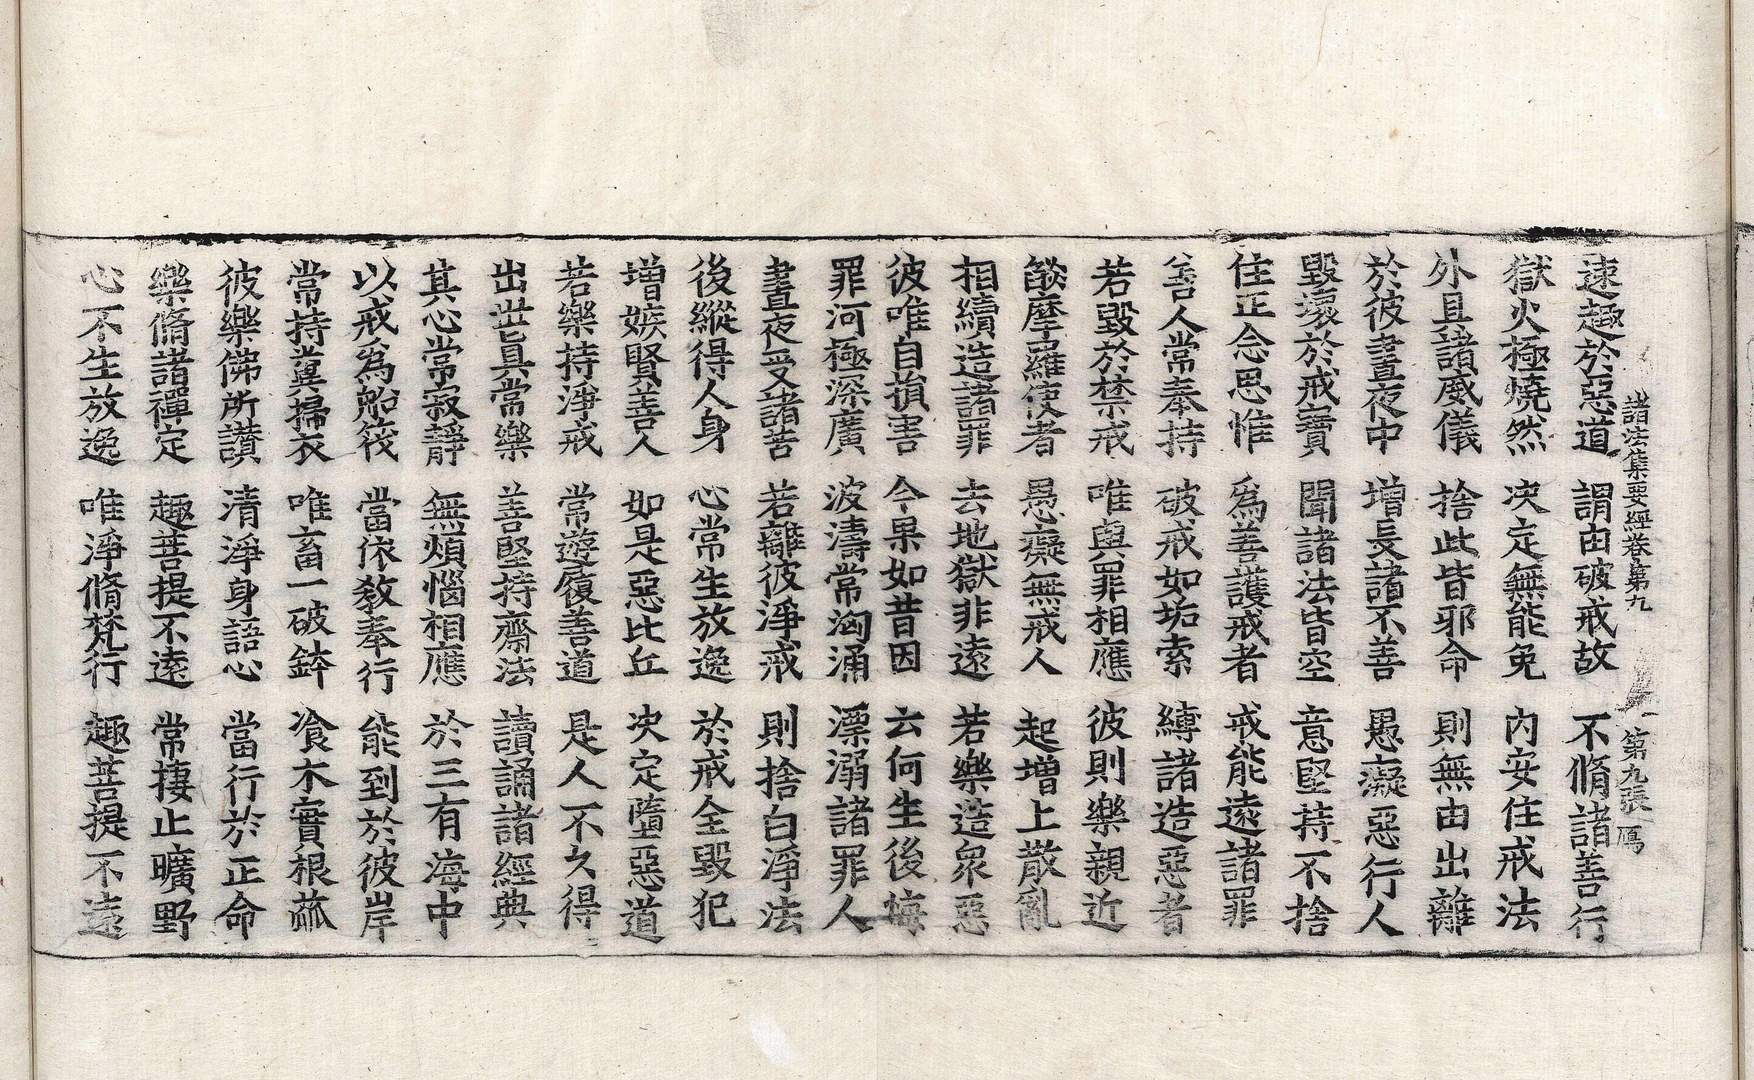 諸法集要經卷第九　第九張　鴈
速趣於惡道　謂由破戒故　不脩諸善行
獄火極燒然　决定無能免　內安住戒法
外具諸威儀　捨此皆邪命　則無由出離
於彼晝夜中　增長諸不善　愚癡惡行人
毀壞於戒寶　聞諸法皆空　意堅持不捨
住正念思惟　爲善護戒者　戒能遠諸罪
善人常奉持　破戒如垢索　縛諸造惡者
若毀於禁戒　唯與罪相應　彼則樂親近
餤摩羅使者　愚癡無戒人　起增上散亂
相續造諸罪　去地獄非遠　若樂造衆惡
彼唯自損害　今果如昔因　云何生後悔
罪河極深廣　波濤常洶涌　漂溺諸罪人
晝夜受諸苦　若離彼淨戒　則捨白淨法
後縱得人身　心常生放逸　於戒全毀犯
增嫉賢善人　如是惡比丘　决定墮惡道
若樂持淨戒　常遊履善道　是人不久得
出世具常樂　善堅持齋法　讀誦諸經典
其心常寂靜　無煩惱相應　於三有海中
以戒爲船筏　當依教奉行　能到於彼岸
常持糞掃衣　唯畜一破鉢　飡木實根蓏
彼樂佛所讃　清淨身語心　當行於正命
樂脩諸禪定　趣菩提不遠　常棲止曠野
心不生放逸　唯淨脩梵行　趣菩提不遠